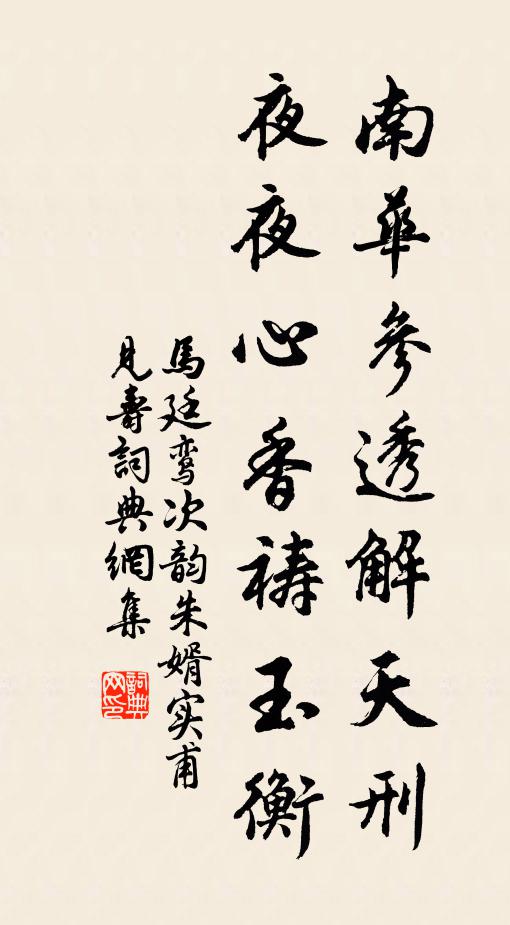 南華參透解天刑
夜夜心香祷玉衡
馬廷鸾次韵朱婿实甫
見壽詞典網集
詞典网印